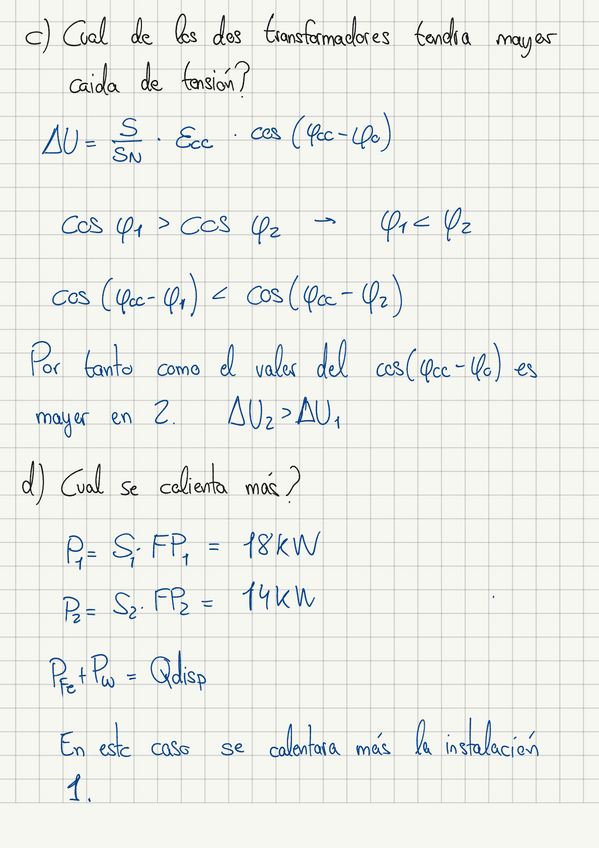 c) Cual de los dos transformadores tendria mayor
caida de tensión?
ΔU = S/SN · Ecc · cos (φcc-φc)
cos φ1 > cos φ2 → φ1 < φ2
cos (φcc-φ1) < cos(φcc-φ2)
Por tanto como el valor del cos(φcc-φc) es
mayor en 2. ΔU2 > ΔU1
d) Cual se calienta más?
P1 = S1 · FP1 = 18kW
P2 = S2 · FP2 = 14kW
PFe + Pw = Qdisp
En este caso se calentara más la instalación
1.